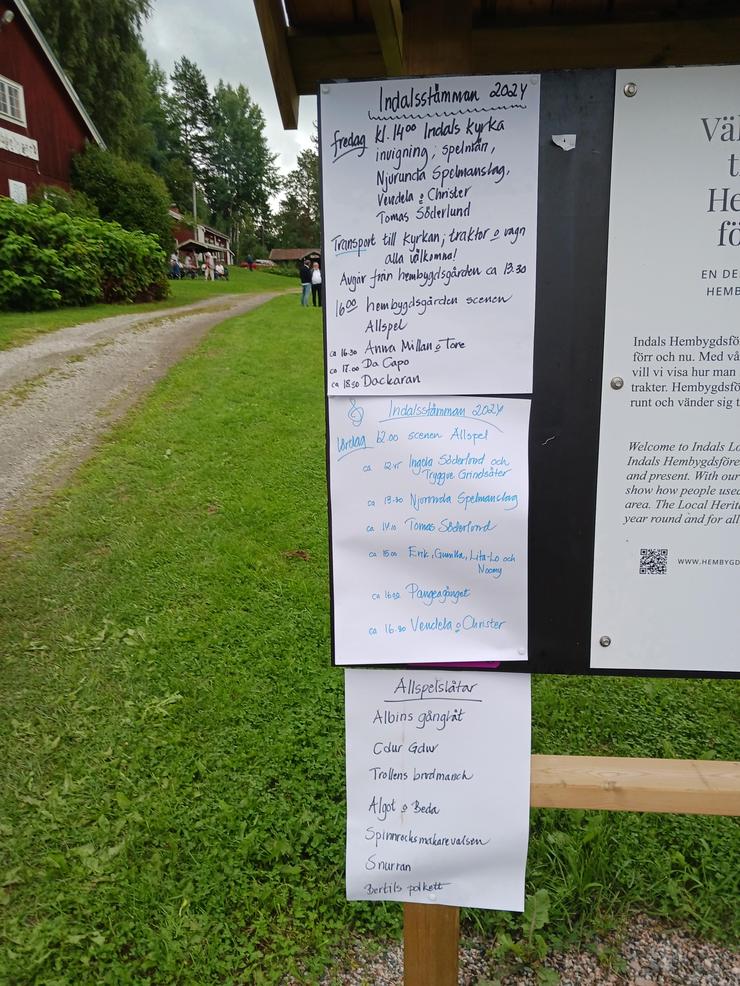 Indalsstämman 2024
fredag kl. 14.00 Indals kyrka
invigning, spelmän,
Njurunda Spelmanslag,
Vendela o Christer
Tomas Söderlund
Transport till kyrkan, traktor o vagn
alla välkomna!
Avgår från hembygdsgården ca 13.30
16.00 hembygdsgården scenen
Allspel
ca 16.30 Anna Millan o Tore
ca 17.00 Da Capo
ca 18.30 Dackaran
Indalsstämman 2024
Lördag 12.00 scenen Allspel
ca 12.15 Ingela Söderlund och
Tryggve Grindsäter
ca 13.30 Njurunda Spelmanslag
ca 14.10 Tomas Söderlund
ca 15.00 Erik, Gunilla, Lita-Lo och
Noomy
ca 16.00 Pangeagänget
ca 16.30 Vendela o Christer
Allspelslåtar
Albins gånglåt
Cdur Gdur
Trollens brudmarsch
Algot o Beda
Spinnrocksmakarevalsen
Snurran
Bertils polkett
Väl
t
He
fö
EN DE
HEMB
Indals Hembygdsfö
förr och nu. Med vå
vill vi visa hur man
trakter. Hembygdsfö
runt och vänder sig t
Welcome to Indals Lo
Indals Hembygdsföre
and present. With our
show how people used
area. The Local Herit
year round and for all
WWW.HEMBYGD